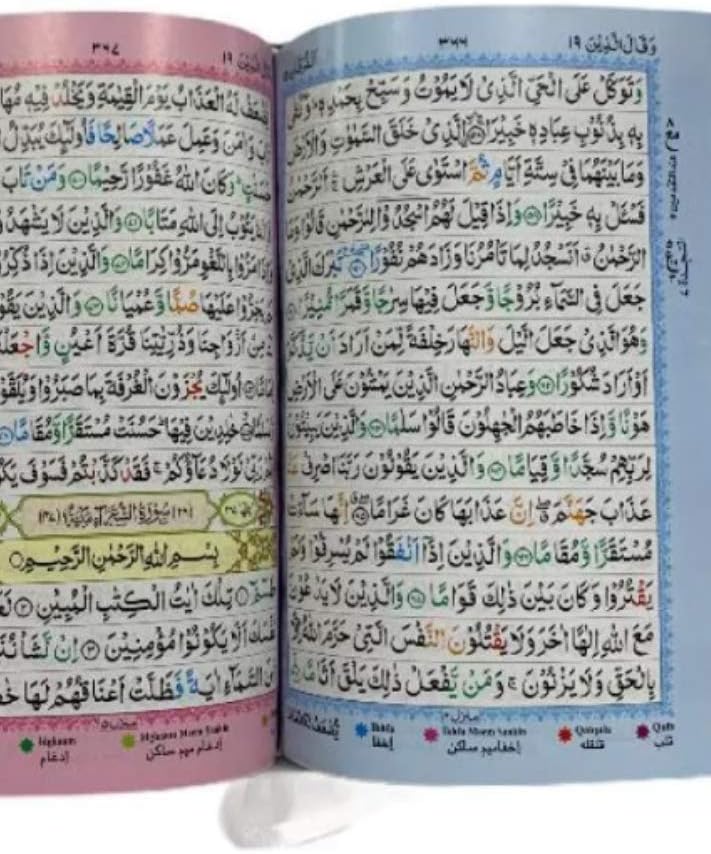 وَقَالَ الَّذِيْنَ ١٩
٣٦٦
وَتَوَكَّلْ عَلَى الْحَيِّ الَّذِىْ لَا يَمُوْتُ وَسَبِّحْ بِحَمْدِهٖ ؕ وَكَفٰى
بِهٖ بِذُنُوْبِ عِبَادِهٖ خَبِيْرَا ۛۙ الَّذِىْ خَلَقَ السَّمٰوٰتِ وَالْاَرْضَ
وَمَا بَيْنَهُمَا فِىْ سِتَّةِ اَيَّامٍ ثُمَّ اسْتَوٰى عَلَى الْعَرْشِ ۛۚ اَلرَّحْمٰنُ
فَسْـَٔلْ بِهٖ خَبِيْرًا ۝ وَاِذَا قِيْلَ لَهُمُ اسْجُدُوْا لِلرَّحْمٰنِ قَالُوْا وَمَا
الرَّحْمٰنُ ۗ اَنَسْجُدُ لِمَا تَاْمُرُنَا وَزَادَهُمْ نُفُوْرًا ۝ تَبٰرَكَ الَّذِىْ
جَعَلَ فِى السَّمَآءِ بُرُوْجًا وَّجَعَلَ فِيْهَا سِرٰجًا وَّقَمَرًا مُّنِيْرًا ۝
وَهُوَ الَّذِىْ جَعَلَ الَّيْلَ وَالنَّهَارَ خِلْفَةً لِّمَنْ اَرَادَ اَنْ يَّذَّكَّرَ
اَوْ اَرَادَ شُكُوْرًا ۝ وَعِبَادُ الرَّحْمٰنِ الَّذِيْنَ يَمْشُوْنَ عَلَى الْاَرْضِ
هَوْنًا وَّاِذَا خَاطَبَهُمُ الْجٰهِلُوْنَ قَالُوْا سَلٰمًا ۝ وَالَّذِيْنَ يَبِيْتُوْنَ
لِرَبِّهِمْ سُجَّدًا وَّقِيَامًا ۝ وَالَّذِيْنَ يَقُوْلُوْنَ رَبَّنَا اصْرِفْ عَنَّا
عَذَابَ جَهَنَّمَ ۖ اِنَّ عَذَابَهَا كَانَ غَرَامًا ۝ اِنَّهَا سَآءَتْ
مُسْتَقَرًّا وَّمُقَامًا ۝ وَالَّذِيْنَ اِذَآ اَنْفَقُوْا لَمْ يُسْرِفُوْا وَلَمْ
يَقْتُرُوْا وَكَانَ بَيْنَ ذٰلِكَ قَوَامًا ۝ وَالَّذِيْنَ لَا يَدْعُوْنَ
مَعَ اللّٰهِ اِلٰهًا اٰخَرَ وَلَا يَقْتُلُوْنَ النَّفْسَ الَّتِىْ حَرَّمَ اللّٰهُ اِلَّا
بِالْحَقِّ وَلَا يَزْنُوْنَ ۚ وَمَنْ يَّفْعَلْ ذٰلِكَ يَلْقَ اَثَامًا ۝
منزل ٤
Ikhfa
Ikhfa Meem Saakin
Qalqala
Qalb
إخفا
إخفا ميم ساكن
قلقله
قلب
١٩
٣٦٧
يُّضٰعَفْ لَهُ الْعَذَابُ يَوْمَ الْقِيٰمَةِ وَيَخْلُدْ فِيْهٖ مُهَا
وَاٰمَنَ وَعَمِلَ عَمَلًا صَالِحًا فَاُولٰٓئِكَ يُبَدِّلُ
حَسَنٰتٍ ؕ وَكَانَ اللّٰهُ غَفُوْرًا رَّحِيْمًا ۝ وَمَنْ تَابَ
يَتُوْبُ اِلَى اللّٰهِ مَتَابًا ۝ وَالَّذِيْنَ لَا يَشْهَدُ
مَرُّوْا بِاللَّغْوِ مَرُّوْا كِرَامًا ۝ وَالَّذِيْنَ اِذَا ذُكِّرُ
يَخِرُّوْا عَلَيْهَا صُمًّا وَّعُمْيَانًا ۝ وَالَّذِيْنَ يَقُوْ
مِنْ اَزْوَاجِنَا وَذُرِّيّٰتِنَا قُرَّةَ اَعْيُنٍ وَّاجْعَلْنَا
۝ اُولٰٓئِكَ يُجْزَوْنَ الْغُرْفَةَ بِمَا صَبَرُوْا وَيُلَقَّوْ
خٰلِدِيْنَ فِيْهَا ؕ حَسُنَتْ مُسْتَقَرًّا وَّمُقَامًا
رَبِّىْ لَوْلَا دُعَآؤُكُمْ ۚ فَقَدْ كَذَّبْتُمْ فَسَوْفَ يَكُوْ
سُوْرَةُ الشُّعَرَآءِ مَكِّيَّةٌ
بِسْمِ اللّٰهِ الرَّحْمٰنِ الرَّحِيْمِ
طٰسٓمّٓ ۝ تِلْكَ اٰيٰتُ الْكِتٰبِ الْمُبِيْنِ ۝ لَعَ
نَّفْسَكَ اَلَّا يَكُوْنُوْا مُؤْمِنِيْنَ ۝ اِنْ نَّشَاْ نُنَ
مِّنَ السَّمَآءِ اٰيَةً فَظَلَّتْ اَعْنَاقُهُمْ لَهَا خٰضِ
منزل ٥
Idghaam
Idghaam Meem Saakin
إدغام
إدغام ميم ساكن